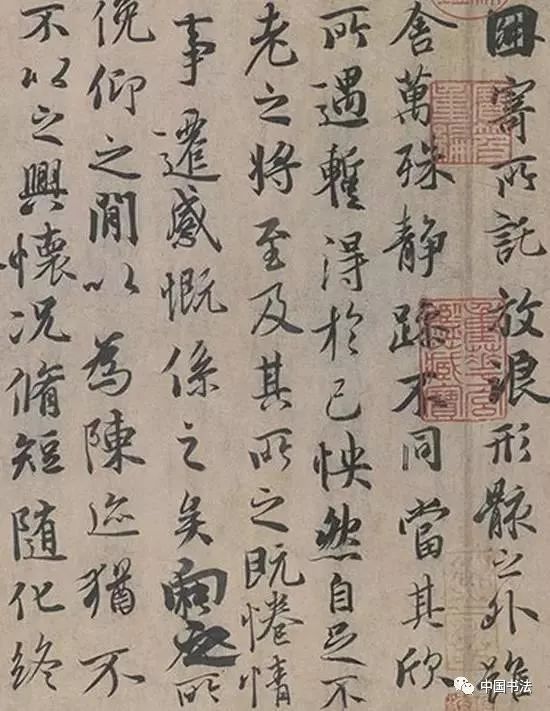 因寄所託放浪形骸之外
舍萬殊静躁不同當其欣
所遇蹔得於己怏然自足不
老之將至及其所之既惓情
事遷感慨係之矣向之所
俛仰之間以為陳迹猶不
不以之興懷况脩短随化終
中国书法